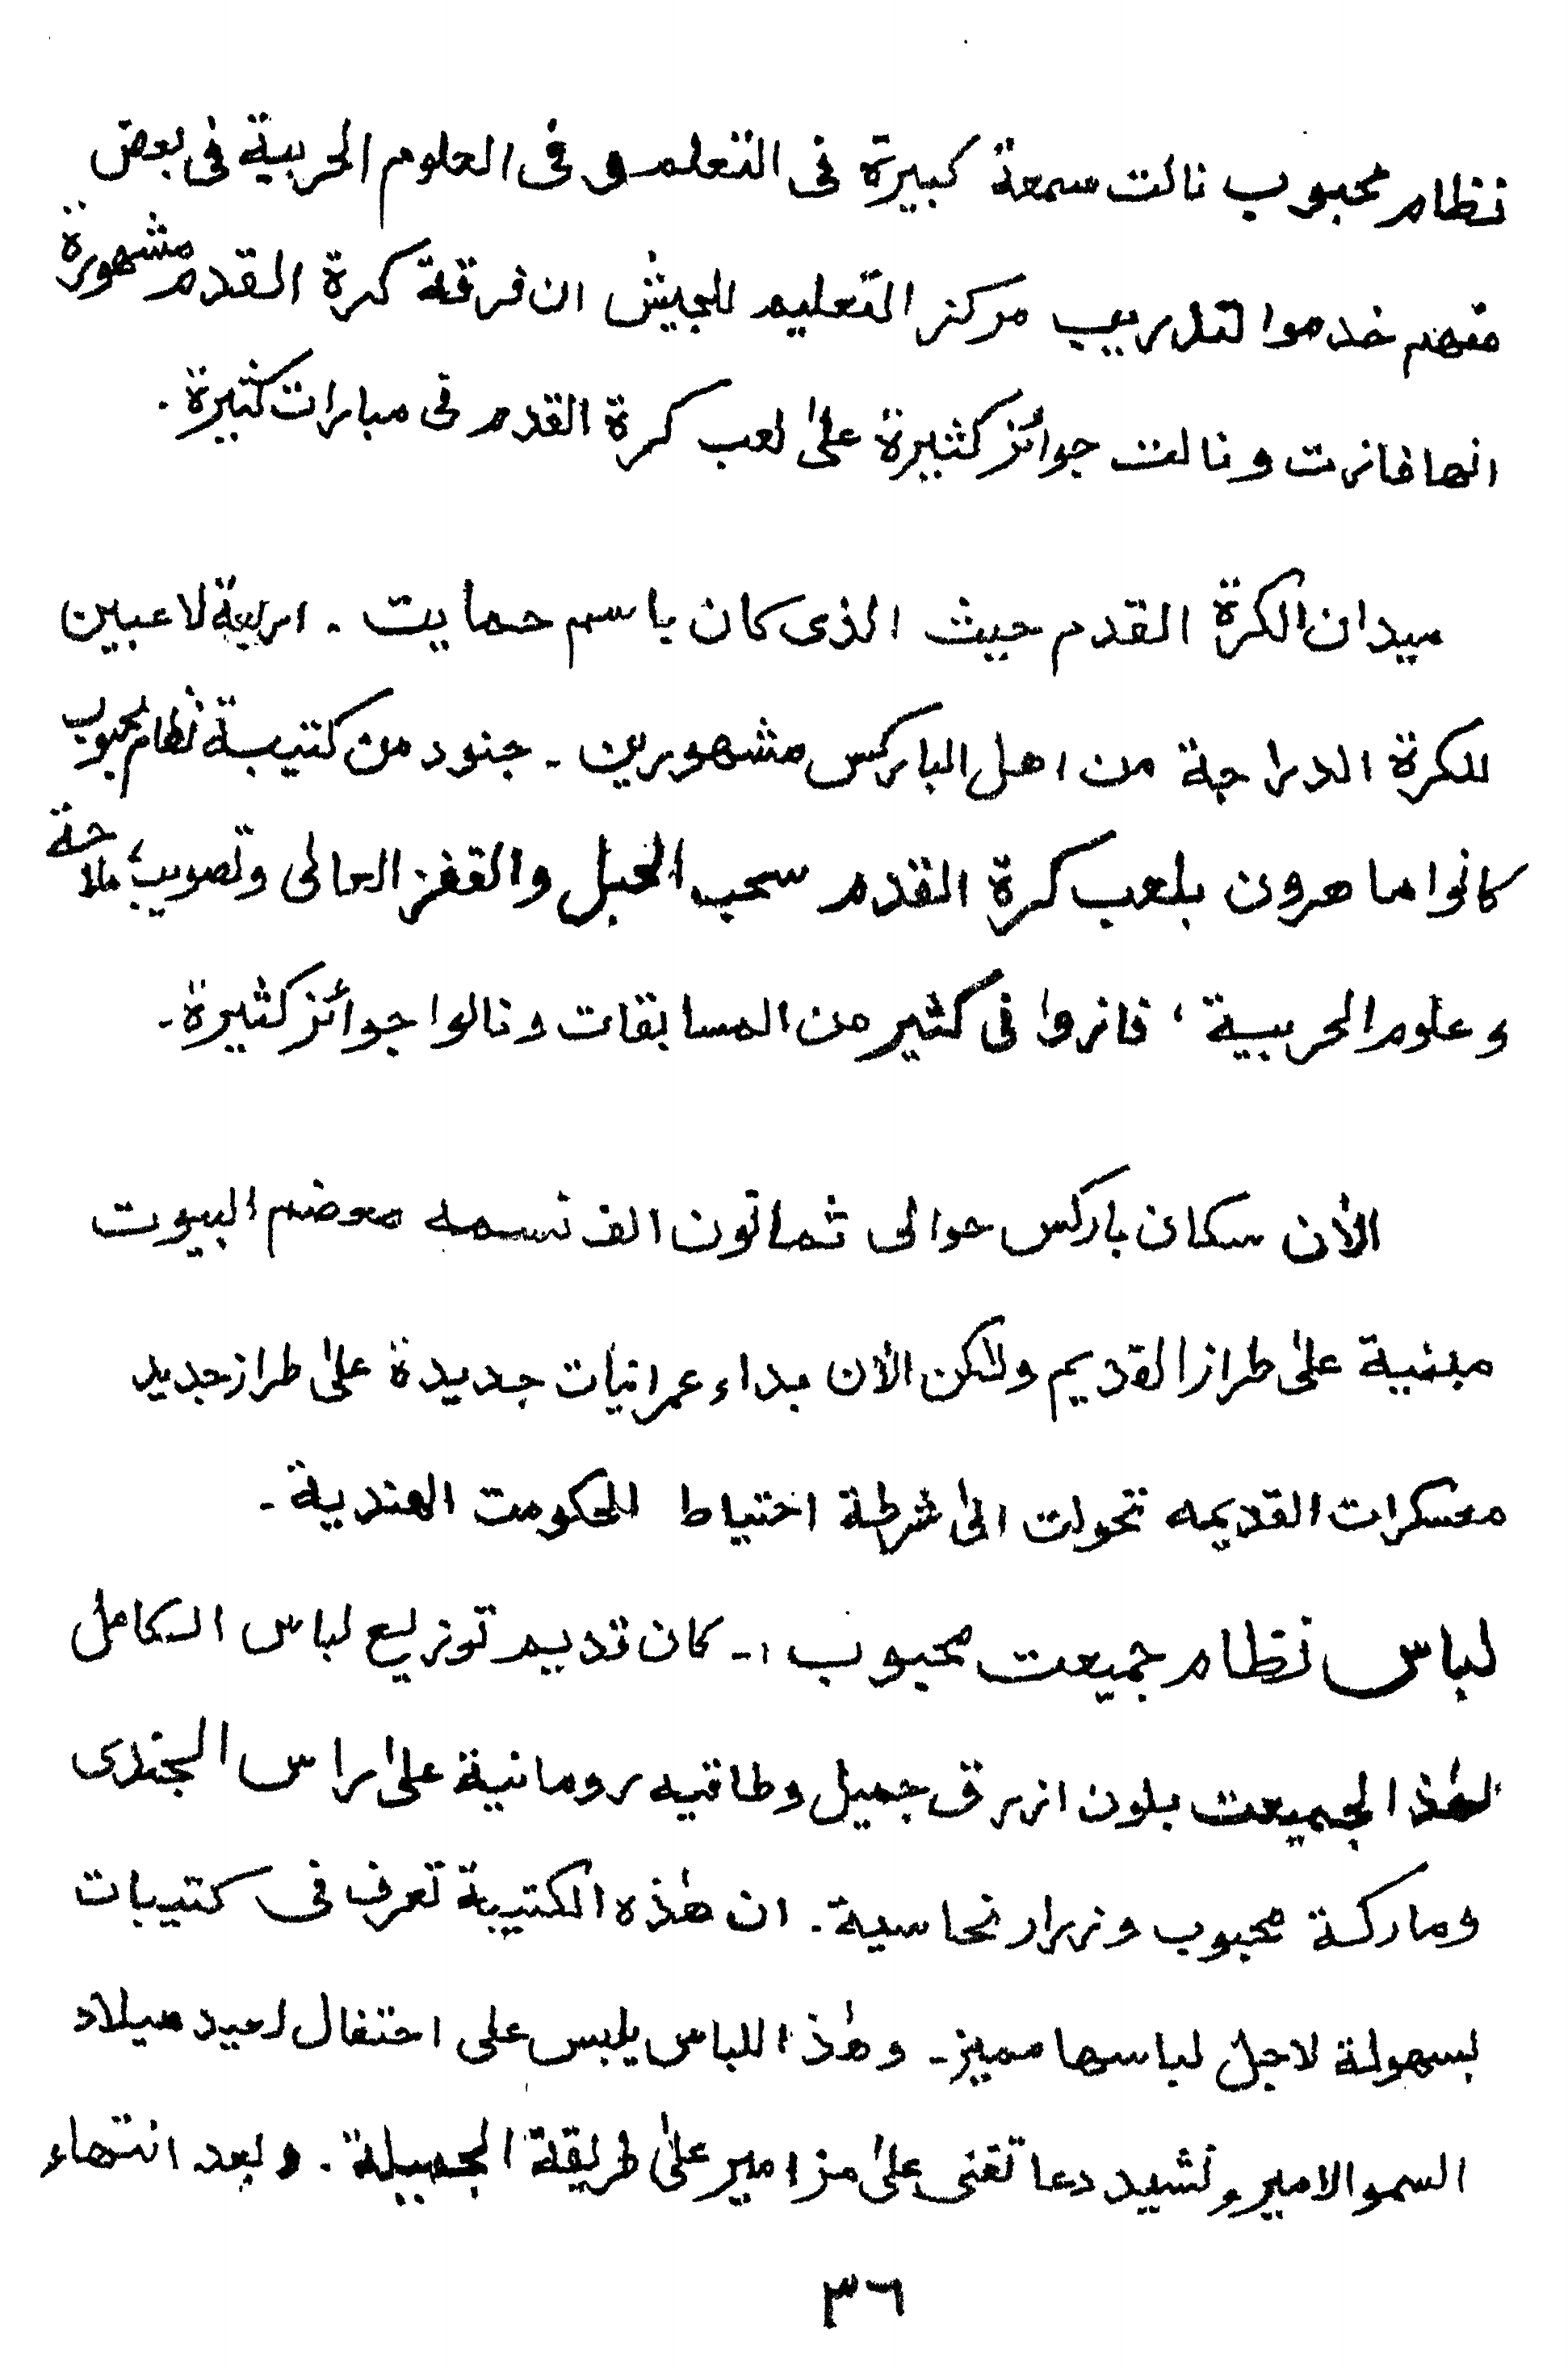 نظام محبوب نالت سمعة كبيرة فى التعلم و فى العلوم الحربية فى بعض
منهم خدموا لتدريب مركز التعليم للجيش ان فرقة كرة القدم مشهورة
انها فازت و نالت جوائز كثيرة علىٰ لعب كرة القدم فى مبارات كثيرة .
ميدان الكرة القدم حيث الذى كان باسم حمايت . اربعة لاعبين
للكرة الدراجة من اهل الباركس مشهورين - جنود من كتيبة نظام محبوب
كانوا ماهرون بلعب كرة القدم سحب الحبل والقفز العالى وتصويب، ملاحة
و علوم الحربية ، فازوا فى كثير من المسابقات و نالوا جوائز كثيرة -
الأن سكان باركس حوالى ثمانون الف نسمه معضم البيوت
مبنية علىٰ طراز القديم ولٰكن الأن بداء عمرانيات جديدة علىٰ طراز جديد
معسكرات القديمه تحولت الىٰ شرطة احتياط للحكومت الهندية -
لباس نظام جميعت محبوب :- كان قديم توزيع لباس الكامل
لهٰذا الجميعت بلون ازرق جميل وطاقيه رومانية علىٰ راس الجندى
وماركة محبوب وزرار نحاسية . ان هٰذه الكتيبة تعرف فى كتيبات
بسهولة لاجل لباسها مميز - وهٰذا اللباس يلبس على احتفال لعيد ميلاد
السمو الامير و نشيد دعا تغنى علىٰ مزامير علىٰ طريقة الجميلة . و بعد انتهاء
٣٦